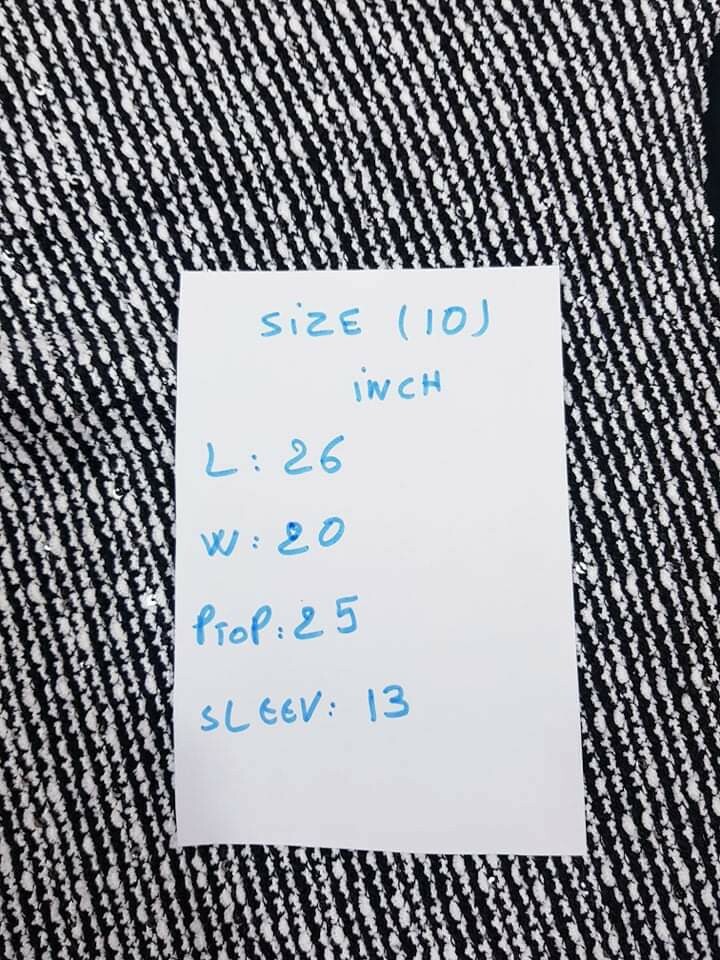 SiZE (10)
iNCH
L: 26
W: 20
PToP: 25
SLEEV: 13